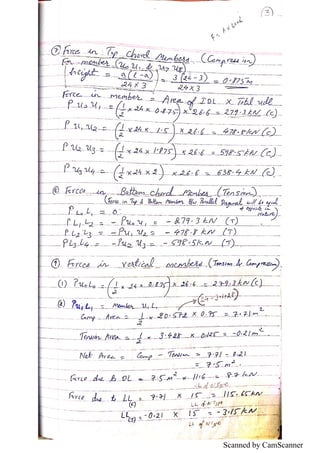 ③
F = A x Load
⑦ Force in Top Chord Members (Compression)
For member (U0U1, & U7 U8)
height = a(l-a) / 24x3 = 3(24-3) / 24x3 = 0.875m
Force in member = Area of IDL x Total udl
P U0U1 = (1/2 x 24 x 0.875) x 26.6 = 279.3 kN (C)
P U1 U2 = (1/2 x 24 x 1.5) x 26.6 = 478.8 kN (C)
P U2 U3 = (1/2 x 24 x 1.875) x 26.6 = 598.5 kN (C)
P U3 U4 = (1/2 x 24 x 2) x 26.6 = 638.4 kN (C)
⑧ Force in Bottom Chord Member (Tension)
(Force in Top & Bottom Member in Parallel Diagonal will be equal & opposite in nature)
P L0 L1 = 0
P L1 L2 = - P U0 U1 = - 279.3 kN (T)
P L2 L3 = - P U1 U2 = - 478.8 kN (T)
P L3 L4 = - P U2 U3 = - 598.5 kN (T)
⑨ Forces in vertical members (Tension & Compression)
(1) P U0 L0 = (1/2 x 24 x 0.875) x 26.6 = 279.3 kN (C)
(2) P U1 L1 = Member U1 L1
(24-3.428)
Comp. Area = 1/2 x 20.572 x 0.75 = 7.71 m²
Tension Area = 1/2 x 3.428 x 0.125 = -0.21 m²
Net Area = Comp - Tension = 7.71 - 0.21
= 7.5 m²
Force due to DL = 7.5 m² x 11.6 = 87 kN
Force due to LL (C) = 7.71 x 15 = 115.65 kN
LL (T) = -0.21 x 15 = -3.15 kN
Scanned by CamScanner